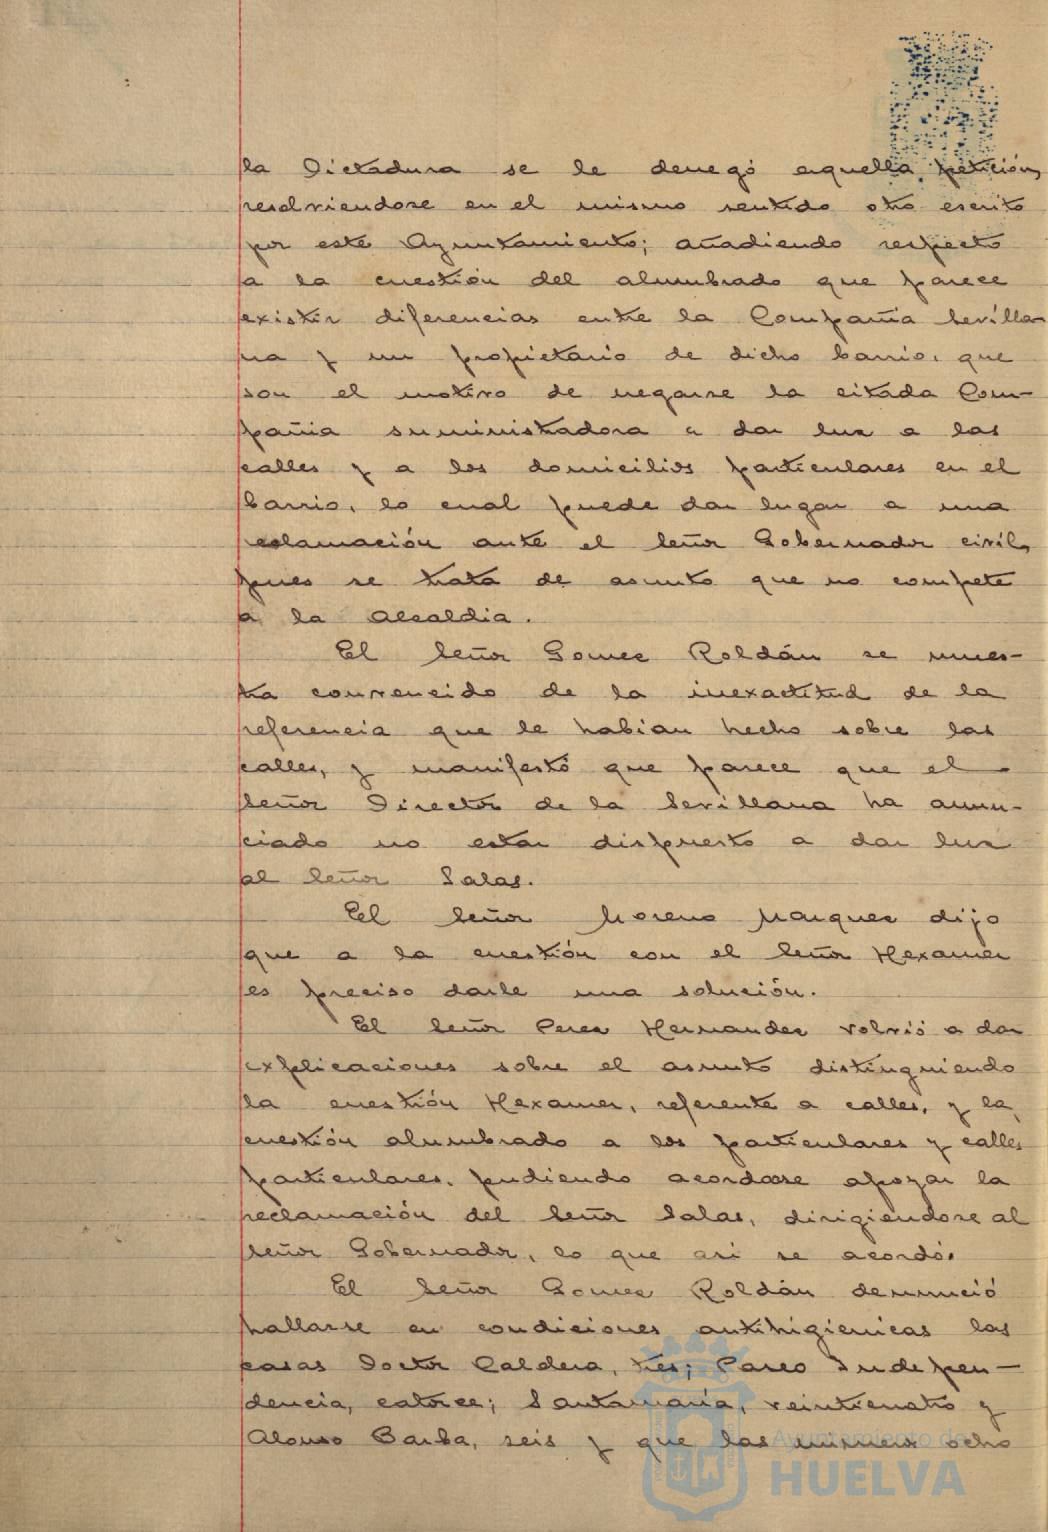 la Dictadura se le denegó aquella petición,
resolviendose en el mismo sentido otro escrito
por este Ayuntamiento; añadiendo respecto
a la cuestión del alumbrado que parece
existir diferencias entre la Compañia Sevilla-
na y un propietario de dicho barrio, que
son el motivo de negarse la citada Com-
pañia suministradora a dar luz a las
calles y a los domicilios particulares en el
barrio, lo cual puede dar lugar a una
reclamación ante el Señor Gobernador civil,
pues se trata de asunto que no compete
a la Alcaldia.
El Señor Gomez Roldán se mues-
tra convencido de la inexactitud de la
referencia que le habian hecho sobre las
calles, y manifestó que parece que el
Señor Director de la Sevillana ha anun-
ciado no estar dispuesto a dar luz
al Señor Salas.
El Señor Moreno Marquez dijo
que a la cuestión con el Señor Hexamer
es preciso darle una solución.
El Señor Perez Hernandez volvió a dar
explicaciones sobre el asunto distinguiendo
la cuestión Hexamer, referente a calles, y la
cuestión alumbrado a los particulares y calles
particulares, pudiendo acordarse apoyar la
reclamación del Señor Salas, dirigiendose al
Señor Gobernador, lo que asi se acordó.
El Señor Gomez Roldán denunció
hallarse en condiciones antihigienicas las
casas Doctor Caldera, tres; Paseo Indepen-
dencia, catorce; Santamaria, veinticuatro y
Alonso Barba, seis y que las numero ocho
Ayuntamiento de
HUELVA